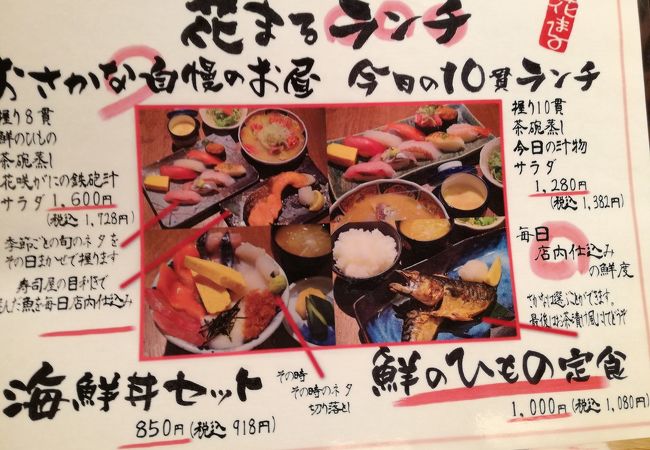 花まるランチ
花まる
おさかな自慢のお昼
握り8貫
鮮のひもの
茶碗蒸し
花咲がにの鉄砲汁
サラダ 1,600円
(税込 1,728円)
季節ごとの旬のネタを
その日まかせで握ります
寿司屋の目利きで
魚を毎日店内仕込み
今日の10貫ランチ
握り10貫
茶碗蒸し
今日の汁物
サラダ
1,280円
(税込 1,382円)
毎日
店内仕込み
の鮮度
さかなは選ぶことができます。
最後はお茶漬け風にしてどうぞ
海鮮丼セット
その時
その時のネタ
切り落とし
850円(税込 918円)
鮮のひもの定食
1,000円(税込 1,080円)